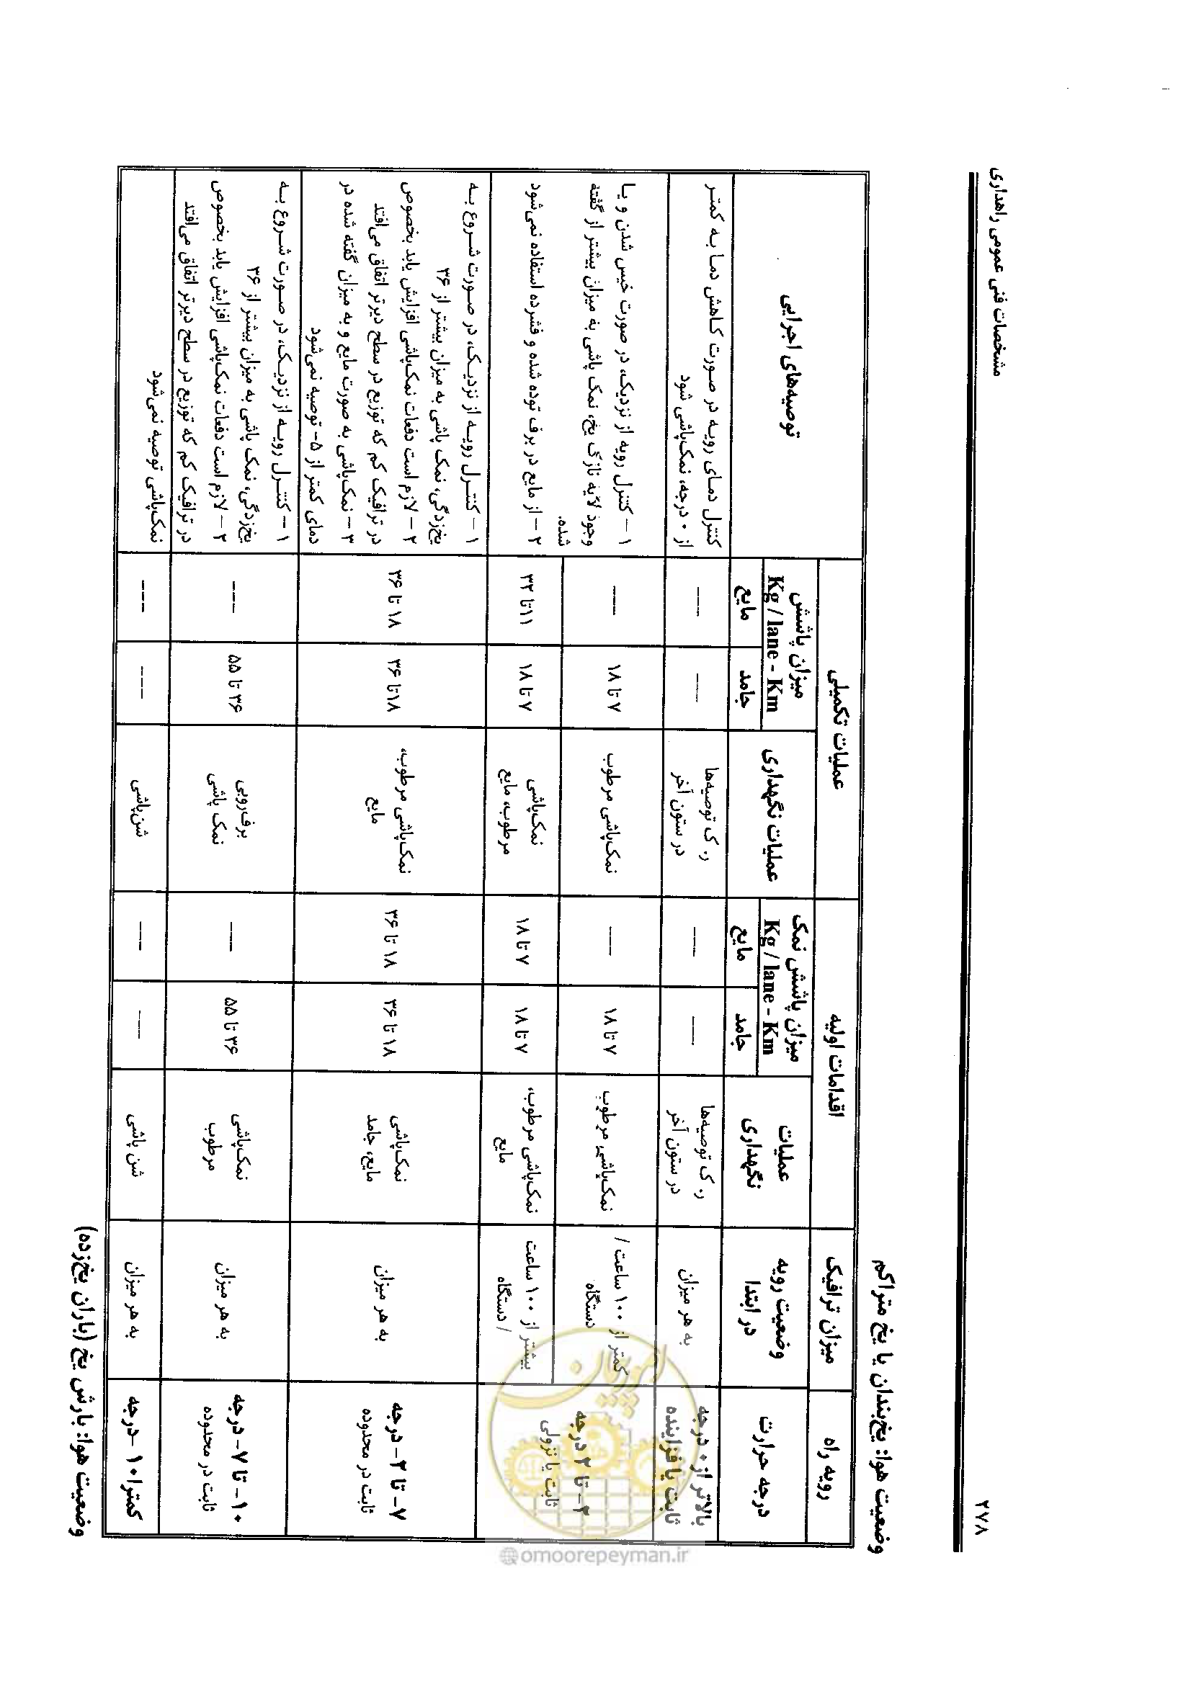 مشخصات فنی عمومی راهداری
۲۷۸
وضعیت هوا: یخ‌بندان یا یخ متراکم
رویه راه
میزان ترافیک
اقدامات اولیه
عملیات تکمیلی
توصیه‌های اجرایی
درجه حرارت
وضعیت رویه
در ابتدا
عملیات
نگهداری
میزان پاشش نمک
Kg / lane - Km
جامد
مایع
عملیات نگهداری
میزان پاشش
Kg / lane - Km
جامد
مایع
بالاتر از ۰ درجه
ثابت یا فزاینده
به هر میزان
ر. ک توصیه‌ها
در ستون آخر
---
---
ر. ک توصیه‌ها
در ستون آخر
---
---
کنترل دمای رویه در صورت کاهش دما به کمتر
از ۰ درجه، نمک‌پاشی شود
۲- تا ۲ درجه
ثابت یا نزولی
کمتر از ۱۰۰ ساعت /
دستگاه
نمک‌پاشی مرطوب
۷ تا ۱۸
---
نمک‌پاشی مرطوب
۷ تا ۱۸
---
۱ – کنترل رویه از نزدیک، در صورت خیس شدن و یا
وجود لایه نازک یخ، نمک پاشی به میزان بیشتر از گفته
شده.
۲ – از مایع در برف توده شده و فشرده استفاده نمی‌شود
بیشتر از ۱۰۰ ساعت
/ دستگاه
نمک‌پاشی مرطوب،
مایع
۷ تا ۱۸
۷ تا ۱۸
نمک‌پاشی
مرطوب، مایع
۷ تا ۱۸
۱۱تا ۳۲
۷- تا ۲- درجه
ثابت در محدوده
به هر میزان
نمک‌پاشی
مایع، جامد
۱۸ تا ۳۶
۱۸ تا ۳۶
نمک‌پاشی مرطوب،
مایع
۱۸تا ۳۶
۱۸ تا ۳۶
۱ – کنترل رویه از نزدیک، در صورت شروع به
یخ‌زدگی، نمک پاشی به میزان بیشتر از ۳۶
۲ – لازم است دفعات نمک‌پاشی افزایش یابد بخصوص
در ترافیک کم که توزیع در سطح دیرتر اتفاق می‌افتد
۳ – نمک‌پاشی به صورت مایع و به میزان گفته شده در
دمای کمتر از ۵- توصیه نمی‌شود
۱۰- تا ۷- درجه
ثابت در محدوده
به هر میزان
نمک‌پاشی
مرطوب
۳۶ تا ۵۵
---
برف‌روبی
نمک پاشی
۳۶ تا ۵۵
---
۱ – کنترل رویه از نزدیک، در صورت شروع به
یخ‌زدگی، نمک پاشی به میزان بیشتر از ۳۶
۲ – لازم است دفعات نمک‌پاشی افزایش یابد بخصوص
در ترافیک کم که توزیع در سطح دیرتر اتفاق می‌افتد
کمتراز ۱۰ -درجه
به هر میزان
شن پاشی
---
---
شن‌پاشی
---
---
نمک‌پاشی توصیه نمی‌شود
وضعیت هوا: بارش یخ (باران یخ‌زده)
امور پیمان
@omoorepeyman.ir